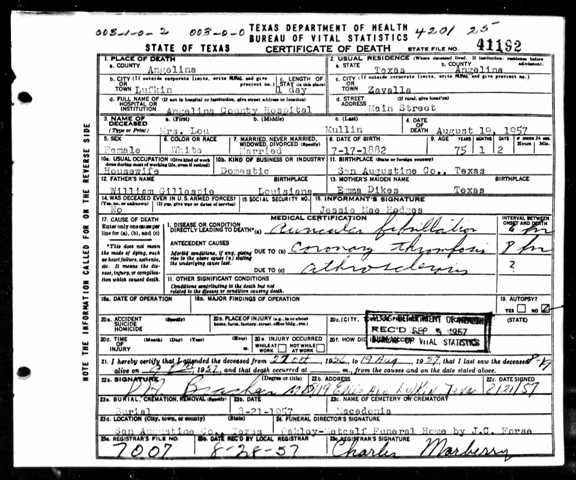 003-1-0-2 003-0-0 TEXAS DEPARTMENT OF HEALTH 4201 25
BUREAU OF VITAL STATISTICS
STATE OF TEXAS CERTIFICATE OF DEATH STATE FILE NO. 41192
1. PLACE OF DEATH 2. USUAL RESIDENCE (Where deceased lived. If institution: residence before admission)
a. COUNTY Angelina a. STATE Texas b. COUNTY Angelina
b. CITY OR TOWN (If outside corporate limits, write RURAL and give precinct no.) Lufkin c. LENGTH OF STAY (in this place) 1 day c. CITY OR TOWN (If outside corporate limits, write RURAL and give precinct no.) Zavalla
d. FULL NAME OF HOSPITAL OR INSTITUTION (If not in hospital or institution, give street address or location) Angelina County Hospital d. STREET ADDRESS (If rural, give location) Main Street
3. NAME OF DECEASED (Type or Print) a. (First) Mrs. Lou b. (Middle) c. (Last) Mullin 4. DATE OF DEATH August 19, 1957
5. SEX Female 6. COLOR OR RACE White 7. MARRIED, NEVER MARRIED, WIDOWED, DIVORCED (Specify) Married 8. DATE OF BIRTH 7-17-1882 9. AGE YEARS 75 MONTHS 1 DAYS 2
10a. USUAL OCCUPATION (Give kind of work done during most of working life, even if retired) Housewife 10b. KIND OF BUSINESS OR INDUSTRY Domestic 11. BIRTHPLACE (State or foreign country) San Augustine Co., Texas
12. FATHER'S NAME William Gillaspie BIRTHPLACE Louisiana 13. MOTHER'S MAIDEN NAME Emma Dikes BIRTHPLACE Texas
14. WAS DECEASED EVER IN U.S. ARMED FORCES? (Yes, no, or unknown) (If yes, give war or dates of service) No 15. SOCIAL SECURITY NO. 16. INFORMANT'S SIGNATURE Jessie Mae Hodges
17. CAUSE OF DEATH MEDICAL CERTIFICATION INTERVAL BETWEEN ONSET AND DEATH
Enter only one cause per line for (a), (b), and (c) I. DISEASE OR CONDITION DIRECTLY LEADING TO DEATH* (a) auricular fibrillation
*This does not mean the mode of dying, such as heart failure, asthenia, etc. It means the disease, injury, or complication which caused death.
ANTECEDENT CAUSES
Morbid conditions, if any, giving rise to the above cause (a) stating the underlying cause last
DUE TO (b) Coronary thrombosis
DUE TO (c)
II. OTHER SIGNIFICANT CONDITIONS
Conditions contributing to the death but not related to the disease or condition causing death.
18a. DATE OF OPERATION 18b. MAJOR FINDINGS OF OPERATION 19. AUTOPSY? YES NO
20a. ACCIDENT SUICIDE HOMICIDE (Specify) 20b. PLACE OF INJURY (e.g., in or about home, farm, factory, street, office bldg., etc.) 20c. (CITY, (STATE)
20d. TIME OF INJURY 20e. INJURY OCCURRED WHILE AT WORK NOT WHILE AT WORK 20f. HOW DID
TEXAS DEPARTMENT OF HEALTH
REC'D SEP 5 1957
BUREAU OF VITAL STATISTICS
21. I hereby certify that I attended the deceased from 22 Oct 1956, to 19 Aug 1957, that I last saw the deceased alive on 1957, and that death occurred at m., from the causes and on the date stated above.
22a. SIGNATURE (Degree or title) 22b. ADDRESS 22c. DATE SIGNED
23a. BURIAL, CREMATION, REMOVAL (Specify) Burial 23b. DATE 8-21-1957 23c. NAME OF CEMETERY OR CREMATORY Macedonia
23d. LOCATION (City, town, or county) (State) San Augustine Co., Texas 24. FUNERAL DIRECTOR'S SIGNATURE Oakley-Metcalf Funeral Home by J.C. Forse
25a. REGISTRAR'S FILE NO. 7007 25b. DATE REC'D BY LOCAL REGISTRAR 8-28-57 25c. REGISTRAR'S SIGNATURE Charles Marberry
NOTE THE INFORMATION CALLED FOR ON THE REVERSE SIDE